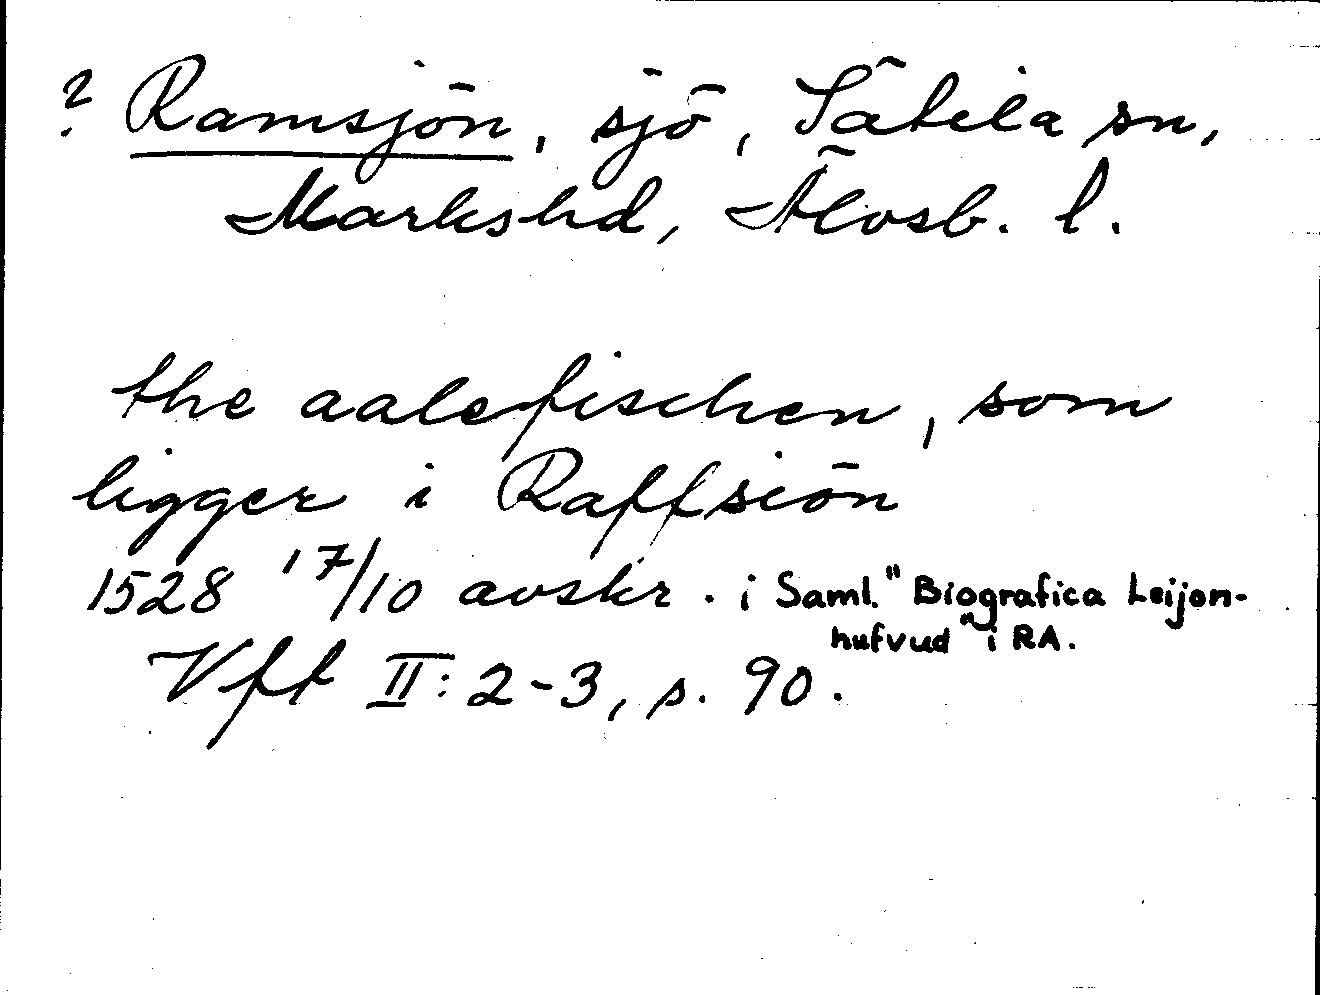 ? Ramsjön, sjö, Sätila sn,
Markshd, Älvsb. l.
the aalefischen, som
ligger i Raffsiön
1528 17/10 avskr. i Saml. "Biografica Leijon-
hufvud" i RA.
Vff II: 2-3, s. 90.